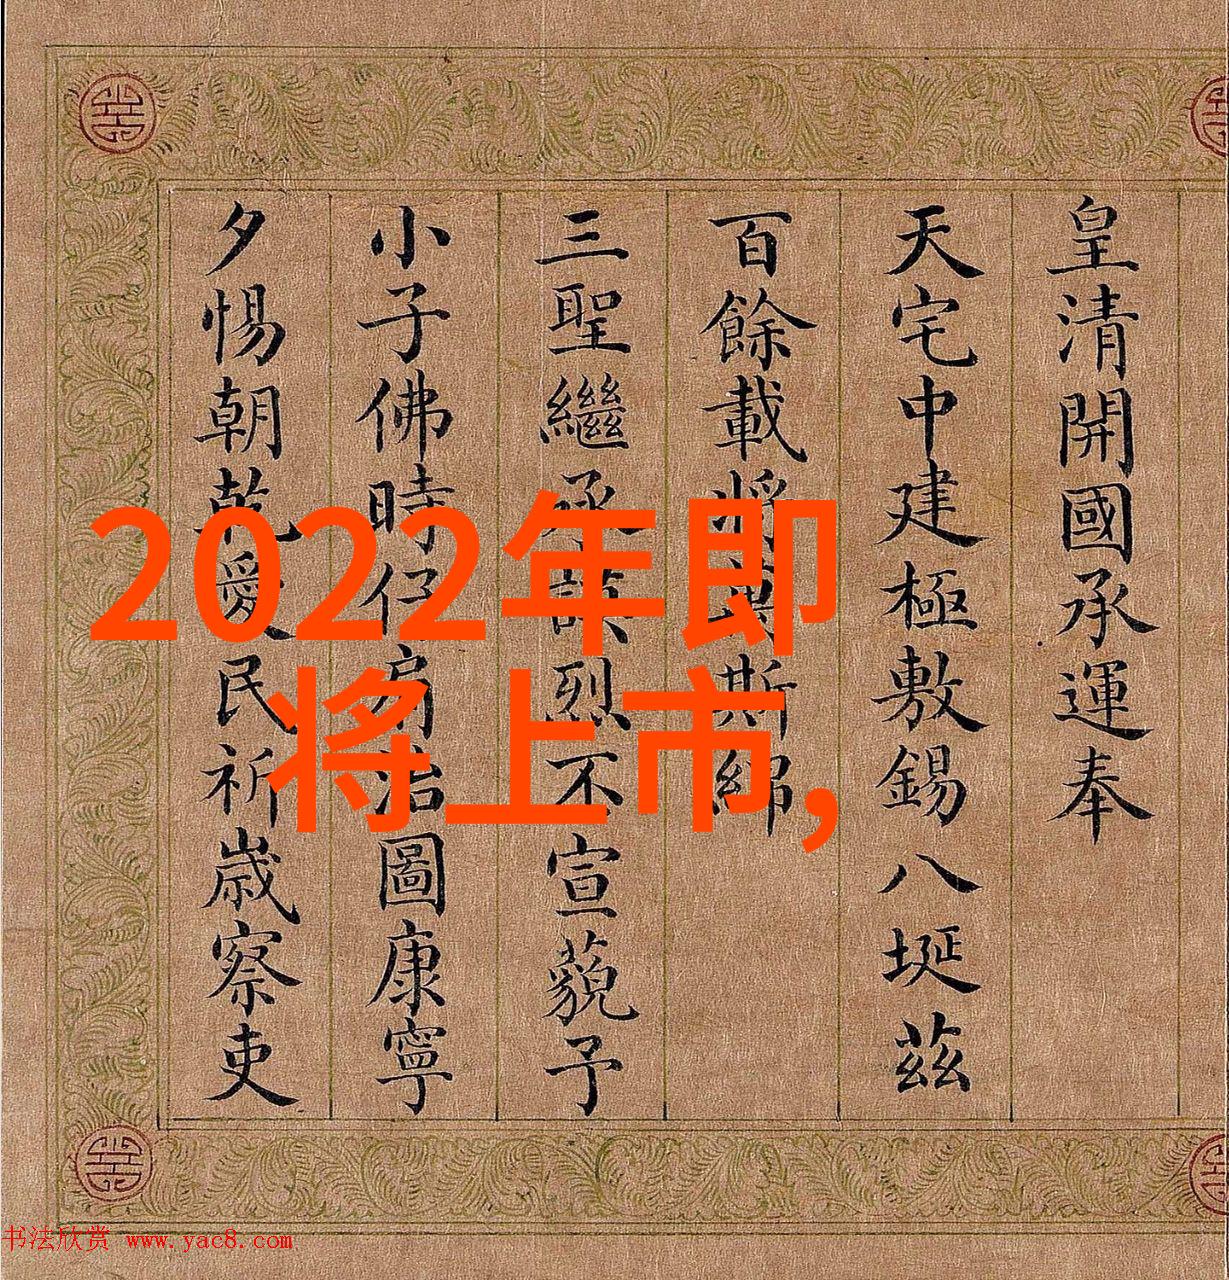 皇清開國承運奉
天宅中建極敷錫八埏茲
百餘載將斯綿
三聖繼承謨烈丕宣藐予
小子佛時仔肩治圖康寧
夕惕朝乾愛民祈歲察吏
2022年即
将上市,
书法欣赏 www.yac8.com